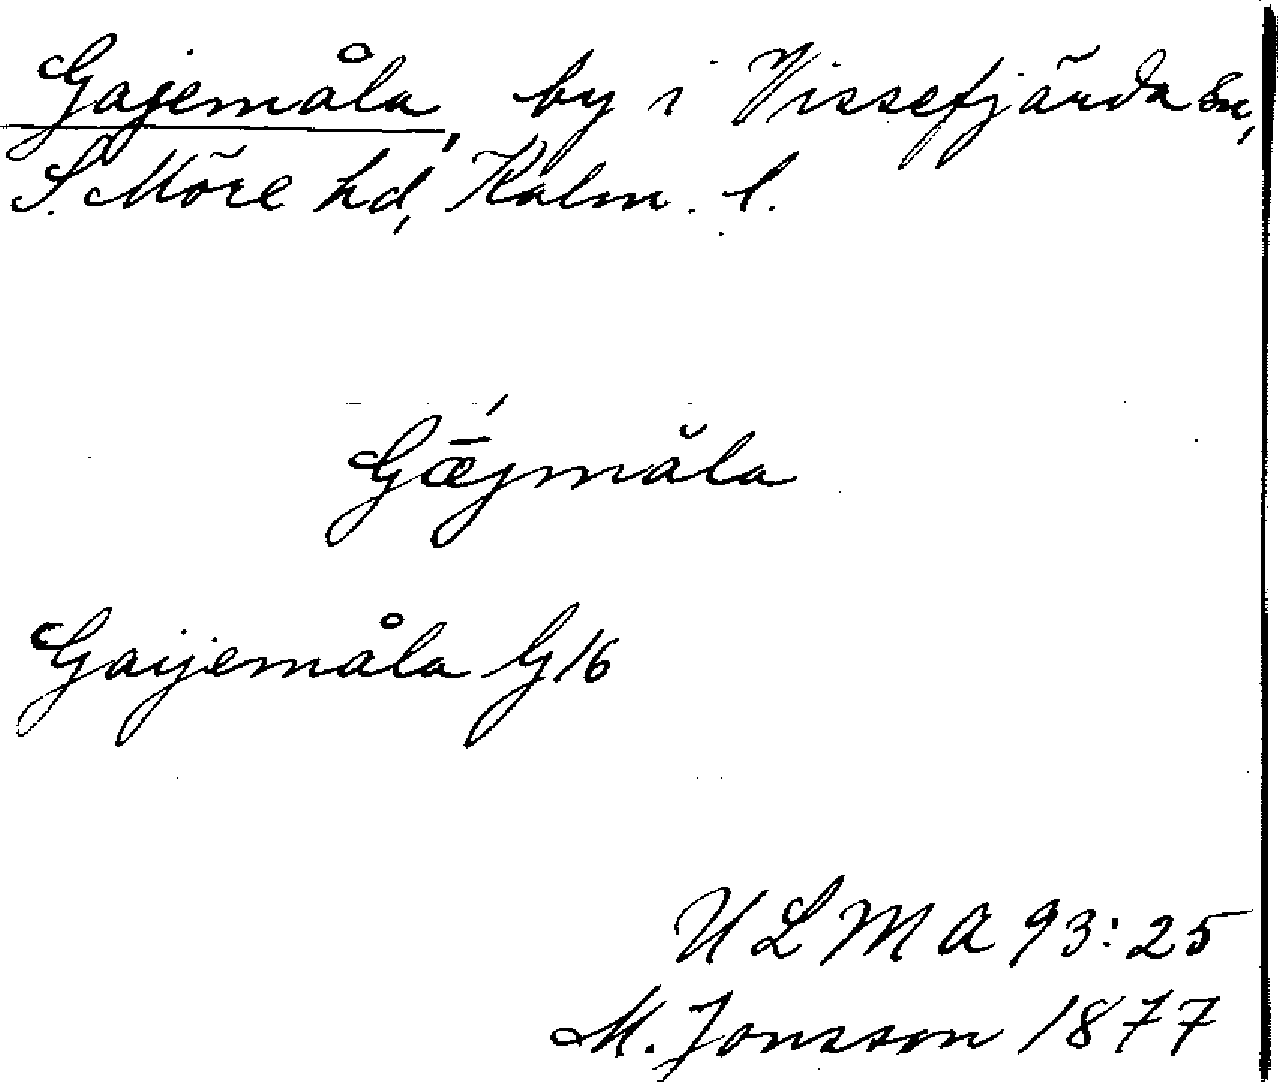 Gajemåla, by i Vissefjärda sn,
S. Möre hd, Kalm. l.
Gǣ́jmăla
Gaijemåla G16
ULMA 93:25
M. Jonsson 1877